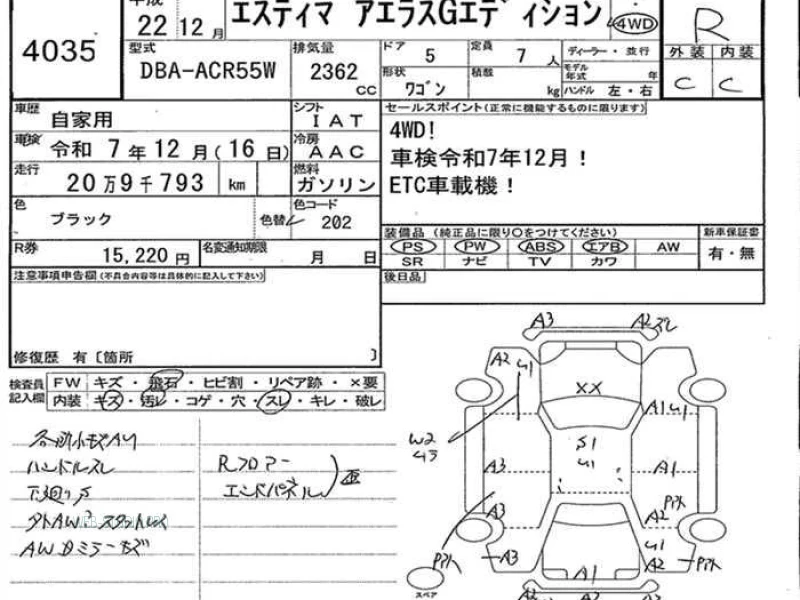 平成
22 12月
エスティマ アエラスGエディション
4WD
R
4035
型式
DBA-ACR55W
排気量
2362 cc
ドア 5
定員 7 人
形状 ワゴン
積載 kg
ディーラー・並行
モデル年式 年
ハンドル 左・右
外装 内装
C C
車歴 自家用
シフト IAT
車検 令和 7年 12月(16日)
冷房 AAC
走行 20万9千793 km
燃料 ガソリン
色 ブラック
色替
色コード 202
R券 15,220円
名変通知期限 月 日
セールスポイント(正常に機能するものに限ります)
4WD!
車検令和7年12月!
ETC車載機!
装備品 (純正品に限り○をつけてください)
新車保証書
PS PW ABS エアB AW
有・無
SR ナビ TV カワ
後日品
注意事項申告欄(不具合内容等は具体的に記入して下さい)
修復歴 有〔箇所 〕
検査員記入欄
FW キズ・飛石・ヒビ割・リペア跡・×要
内装 キズ・汚レ・コゲ・穴・スレ・キレ・破レ
各所小キズAU
ハンドルスレ
下廻りサ
AWカミラーキズ
Rフロアー
エンドパネル
歪
A3
A2
A2
U1
XX
A1 U1
W2
U3
S1
U1
A3
A1
A3
A2
U1
A3
A2
A1
A2
A2
スペア